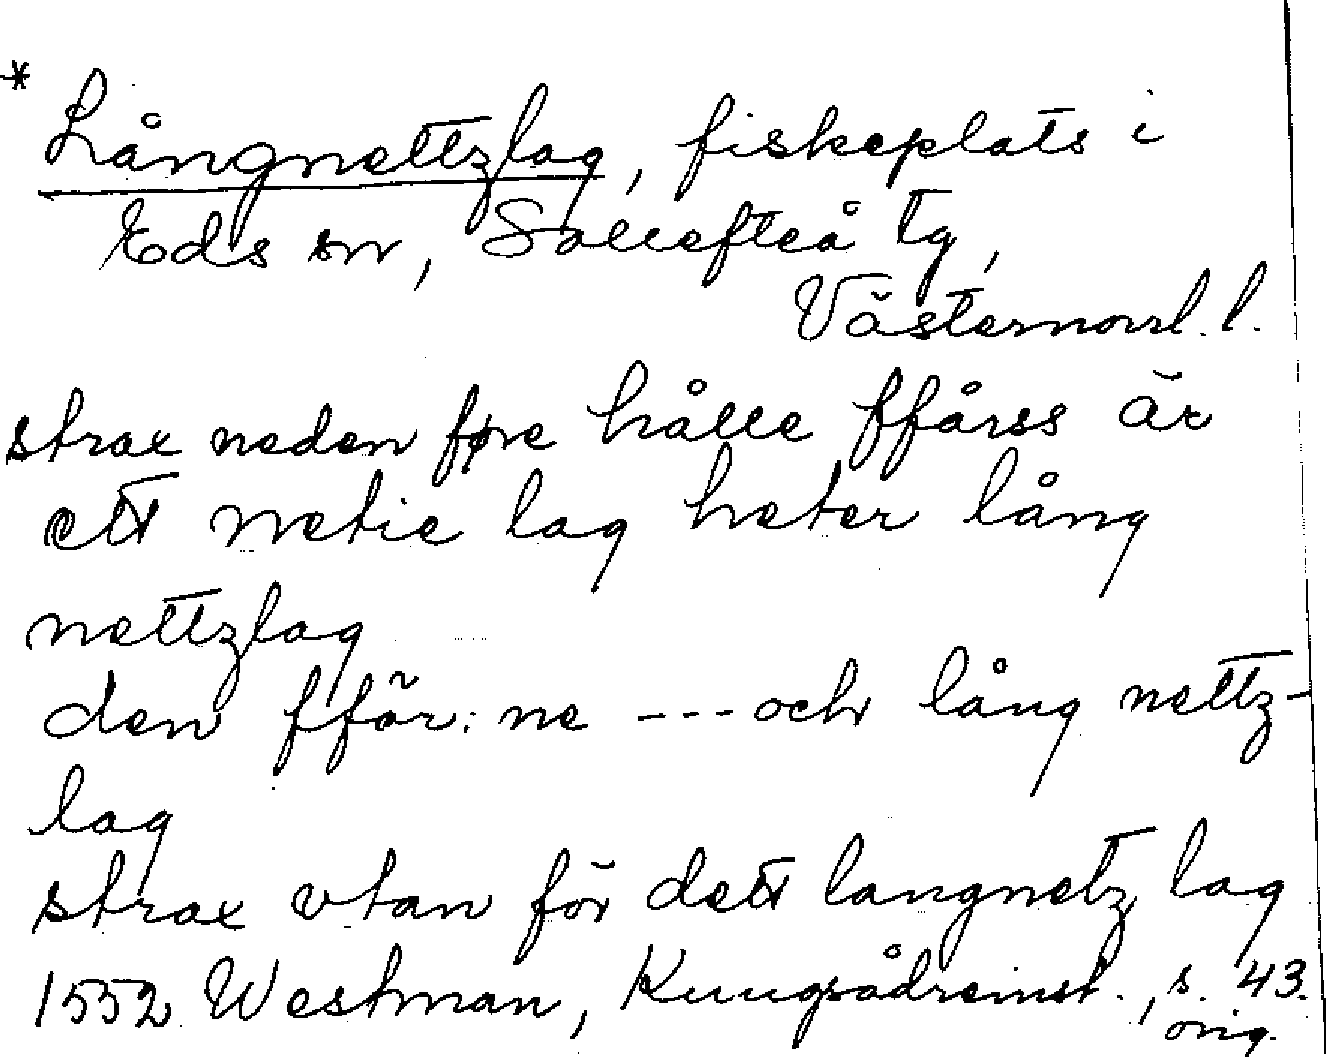 * Långnettzlag, fiskeplats i
Eds sn, Sollefteå tg,
Västernorrl. l.
strax neden føre hålle ffårss är
ett netie lag heter lång
nettzlag
den fför: ne --- och lång nettz-
lag
strax vtan för dett langnetz lag
1552 Westman, Kungsådreinst., s. 43.
orig.